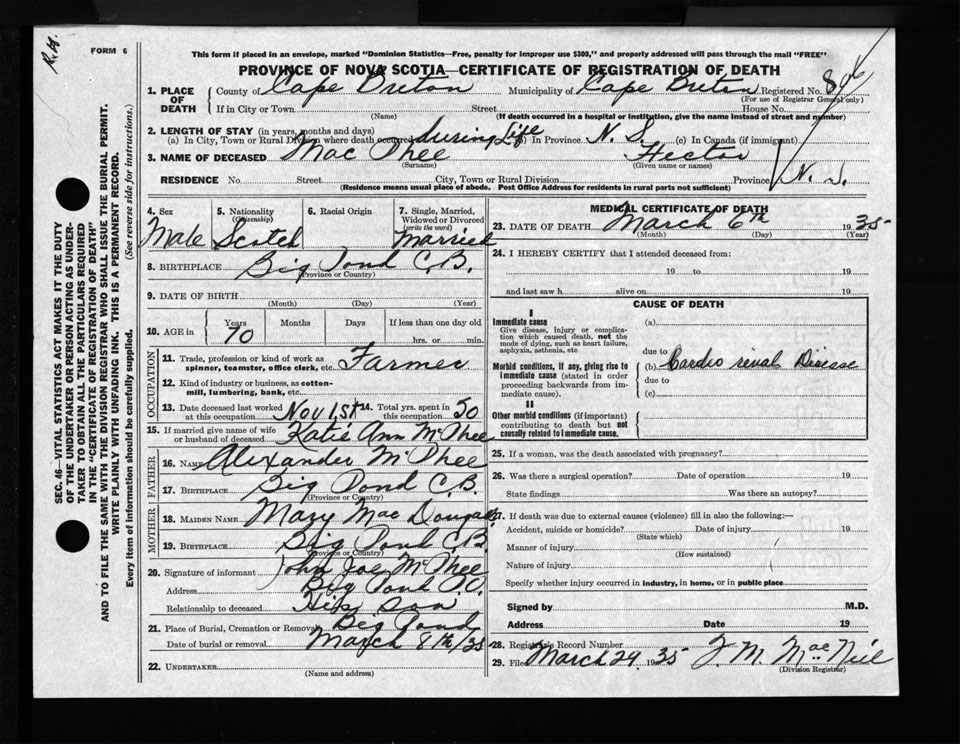 R.H.
FORM 6
This form if placed in an envelope, marked "Dominion Statistics—Free, penalty for improper use $300," and properly addressed will pass through the mail "FREE"
PROVINCE OF NOVA SCOTIA—CERTIFICATE OF REGISTRATION OF DEATH
1. PLACE OF DEATH County of Cape Breton Municipality of Cape Breton Registered No. 846
(For use of Registrar General only)
If in City or Town Street House No.
(Name) (If death occurred in a hospital or institution, give the name instead of street and number)
2. LENGTH OF STAY (in years, months and days)
(a) In City, Town or Rural Division where death occurred during Life (b) In Province N. S. (c) In Canada (if immigrant)
3. NAME OF DECEASED Mac Phee Hector
(Surname) (Given name or names)
RESIDENCE No. Street City, Town or Rural Division Province N. S.
(Residence means usual place of abode. Post Office Address for residents in rural parts not sufficient)
4. Sex Male
5. Nationality (Citizenship) Scotch
6. Racial Origin
7. Single, Married, Widowed or Divorced (write the word) Married
8. BIRTHPLACE Big Pond C.B.
(Province or Country)
9. DATE OF BIRTH
(Month) (Day) (Year)
10. AGE in Years 70 Months Days If less than one day old
hrs. or min.
OCCUPATION
11. Trade, profession or kind of work as spinner, teamster, office clerk, etc. Farmer
12. Kind of industry or business, as cotton-mill, lumbering, bank, etc.
13. Date deceased last worked at this occupation Nov 1st 14. Total yrs. spent in this occupation 50
15. If married give name of wife or husband of deceased Katie Ann McPhee
FATHER
16. NAME Alexander McPhee
17. BIRTHPLACE Big Pond C.B.
(Province or Country)
MOTHER
18. MAIDEN NAME Mary Mac Dougall
19. BIRTHPLACE Big Pond C.B.
(Province or Country)
20. Signature of informant John Joe McPhee
Address Big Pond P.O.
Relationship to deceased His son
21. Place of Burial, Cremation or Removal Big Pond
Date of burial or removal March 8th/35
22. UNDERTAKER
(Name and address)
MEDICAL CERTIFICATE OF DEATH
23. DATE OF DEATH March 6th 1935
(Month) (Day) (Year)
24. I HEREBY CERTIFY that I attended deceased from:
19 to 19
and last saw h alive on 19
CAUSE OF DEATH
I
Immediate cause (a)
Give disease, injury or complication which caused death, not the mode of dying, such as heart failure, asphyxia, asthenia, etc.
due to
Morbid conditions, if any, giving rise to immediate cause (stated in order proceeding backwards from immediate cause). (b) Cardio renal Disease
due to
(c)
II
Other morbid conditions (if important) contributing to death but not causally related to immediate cause.
25. If a woman, was the death associated with pregnancy?
26. Was there a surgical operation? Date of operation 19
State findings Was there an autopsy?
27. If death was due to external causes (violence) fill in also the following:—
Accident, suicide or homicide? Date of injury 19
(State which)
Manner of injury
(How sustained)
Nature of injury
Specify whether injury occurred in industry, in home, or in public place
Signed by M.D.
Address Date 19
28. Registrar's Record Number
29. Filed March 29, 1935 J. M. MacNeil
(Division Registrar)
SEC. 46—VITAL STATISTICS ACT MAKES IT THE DUTY
OF THE UNDERTAKER OR PERSON ACTING AS UNDER-
TAKER TO OBTAIN ALL THE PARTICULARS REQUIRED
IN THE "CERTIFICATE OF REGISTRATION OF DEATH"
AND TO FILE THE SAME WITH THE DIVISION REGISTRAR WHO SHALL ISSUE THE BURIAL PERMIT.
WRITE PLAINLY WITH UNFADING INK. THIS IS A PERMANENT RECORD.
Every item of information should be carefully supplied. (See reverse side for instructions.)